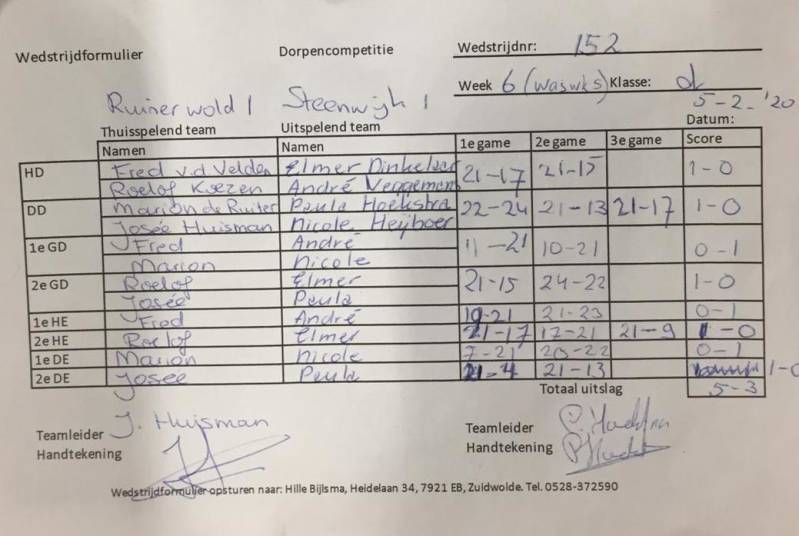 Wedstrijdformulier Dorpencompetitie Wedstrijdnr: 152
Week 6 (was wk5) Klasse: d
Ruinerwold 1 Steenwijk 1 5-2-'20
Thuisspelend team Uitspelend team Datum:
Namen Namen 1e game 2e game 3e game Score
HD Fred v.d Velden Elmer Dinkelaar 21-17 21-15 1-0
Roelof Koezen André Veggemans
DD Marion de Ruiter Paula Hoekstra 22-24 21-13 21-17 1-0
Josée Huisman Nicole Heijboer
1e GD Fred André 11-21 10-21 0-1
Marion Nicole
2e GD Roelof Elmer 21-15 24-22 1-0
Josée Paula
1e HE Fred André 19-21 21-23 0-1
2e HE Roelof Elmer 21-17 17-21 21-9 1-0
1e DE Marion Nicole 7-21 20-22 0-1
2e DE Josée Paula 21-4 21-13 1-0
Totaal uitslag 5-3
Teamleider J. Huisman Teamleider
Handtekening Handtekening
Wedstrijdformulier opsturen naar: Hille Bijlsma, Heidelaan 34, 7921 EB, Zuidwolde. Tel. 0528-372590